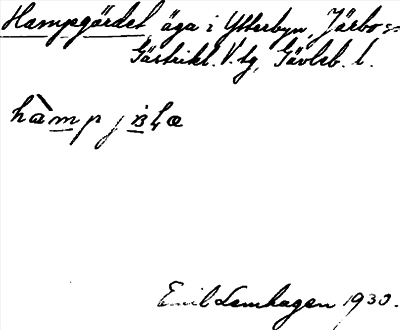 Hampgärdet, äga i Ytterbyn, Järbo sn
Gästrikl. V. tg, Gävleb. l.
Emil Lemhagen 1930.